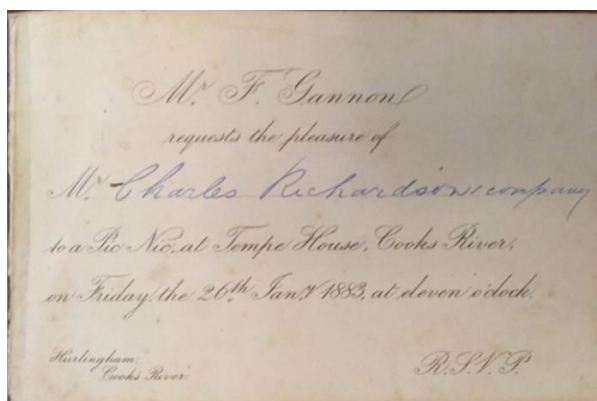 Mr. F. Gannon
requests the pleasure of
Mr. Charles Richardson's company
to a Pic Nic, at Tempe House, Cooks River,
on Friday, the 26th Jany. 1883, at eleven o'clock.
Hurlingham,
Cooks River.
R.S.V.P.